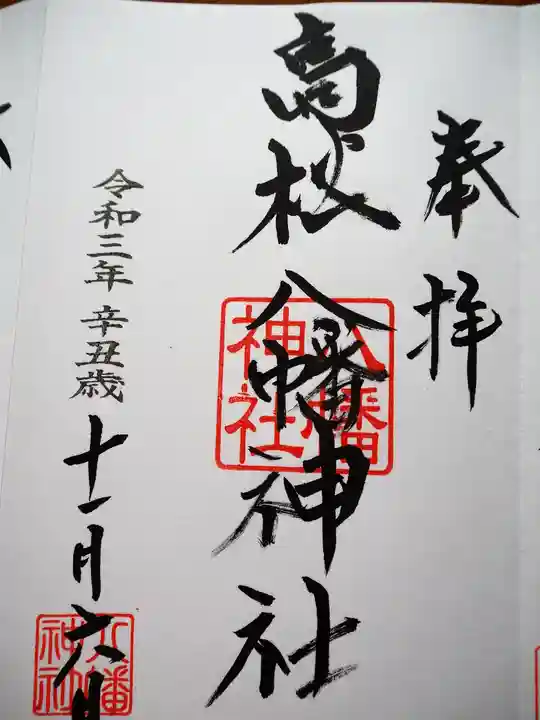 奉拝
高松八幡神社
八幡神社
令和三年 辛丑歳 十一月六日
八幡神社